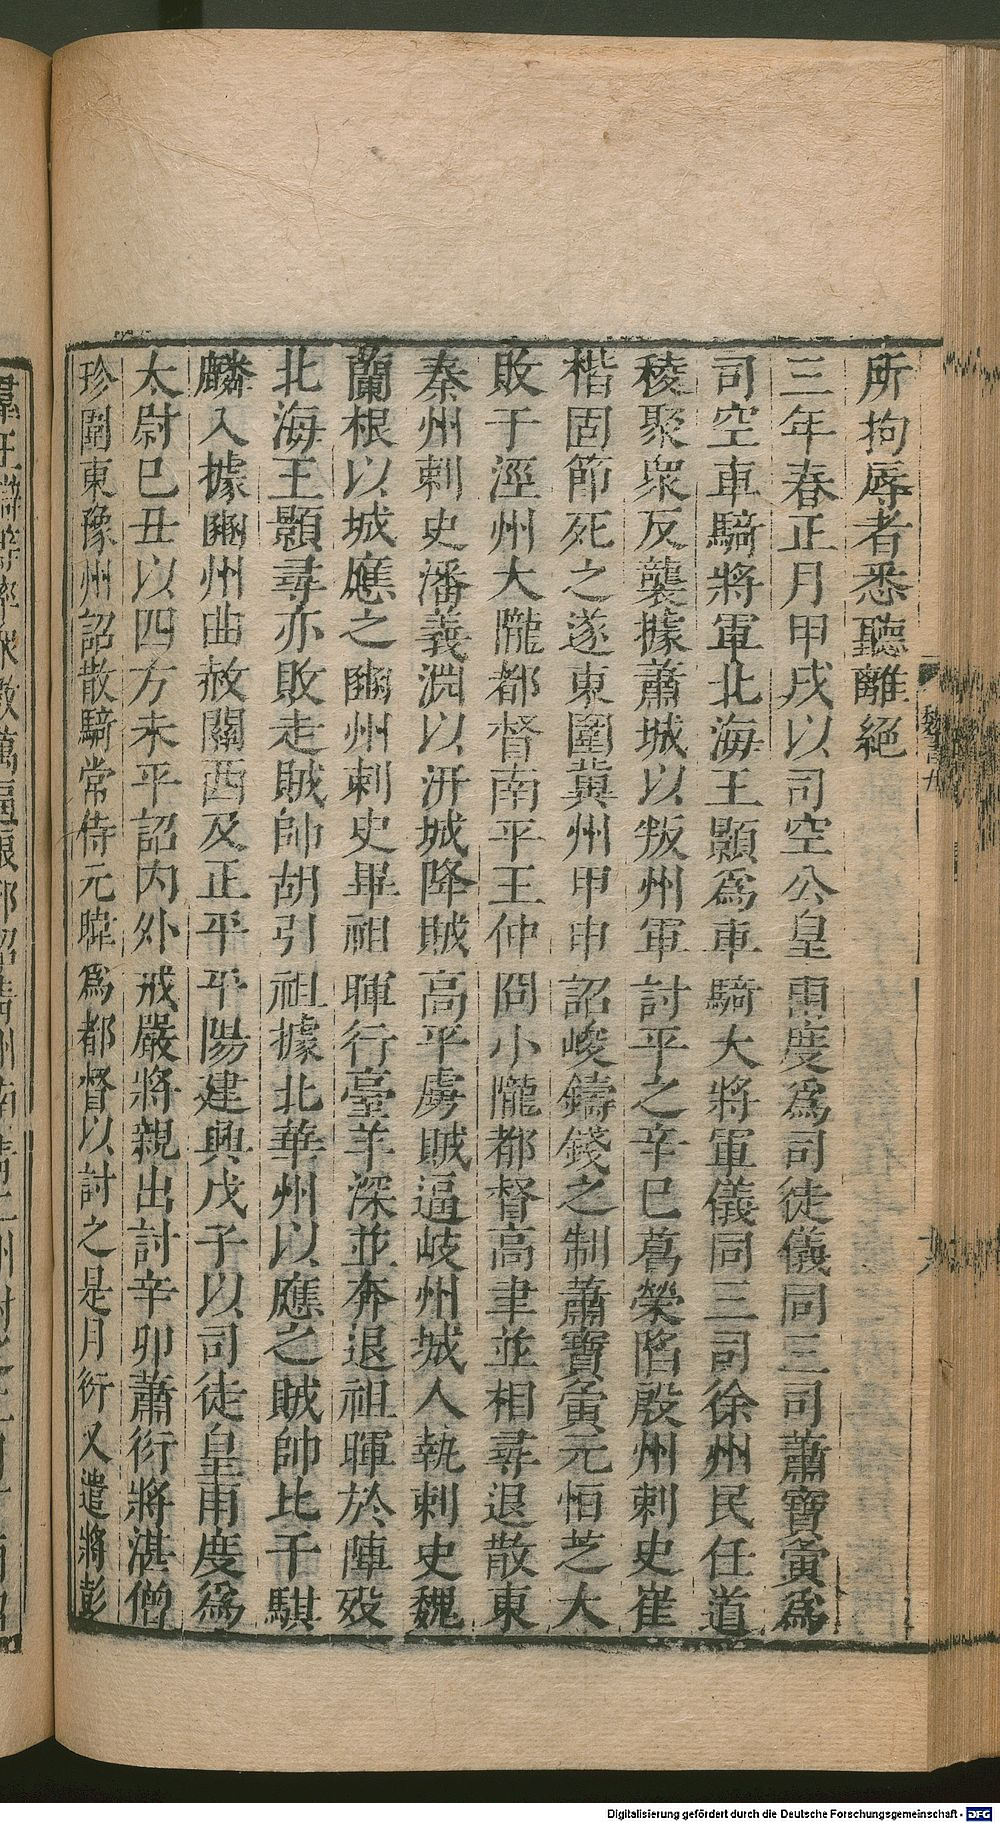 所拘辱者悉聽離絕
三年春正月甲戌以司空公皇甫度爲司徒儀同三司蕭寶夤爲
司空車騎將軍北海王顥爲車騎大將軍儀同三司徐州民任道
稜聚衆反襲據蕭城以叛州軍討平之辛巳葛榮陷殷州刺史崔
楷固節死之遂東圍冀州甲申詔峻鑄錢之制蕭寶夤元恒芝大
敗于涇州大隴都督南平王仲冏小隴都督高聿並相尋退散東
秦州刺史潘義淵以汧城降賊高平虜賊逼岐州城人執刺史魏
蘭根以城應之豳州刺史畢祖暉行臺羊深並奔退祖暉於陣歿
北海王顥尋亦敗走賊帥胡引祖據北華州以應之賊帥比干騏
驎入據豳州曲赦關西及正平平陽建興戊子以司徒皇甫度爲
太尉巳丑以四方未平詔内外戒嚴將親出討辛卯蕭衍將湛僧
珍圍東豫州詔散騎常侍元暐爲都督以討之是月衍又遣將彭
魏書九
Digitalisierung gefördert durch die Deutsche Forschungsgemeinschaft - DFG